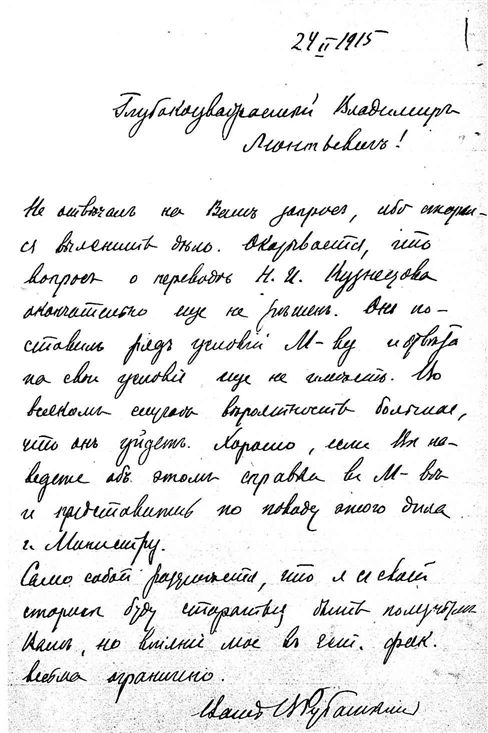 24 II 1915
Глубокоуважаемый Владимиръ
Леонтьевичъ!
Не отвѣчалъ на Вашъ запросъ, ибо старал-
ся выяснить дѣло. Оказывается, что
вопросъ о переводѣ Н. И. Кузнецова
окончательно еще не рѣшенъ. Онъ по-
ставилъ рядъ условій М-ву и отвѣта
на свои условія еще не имѣетъ. Во
всякомъ случаѣ вѣроятность большая,
что онъ уйдетъ. Хорошо, если Вы на-
ведете объ этомъ справки въ М-вѣ
и представитесь по поводу этого дѣла
г. Министру.
Само собой разумѣется, что я съ своей
стороны буду стараться быть полезнымъ
Вамъ, но вліяніе мое въ ест. фак.
весьма ограничено.
Вашъ